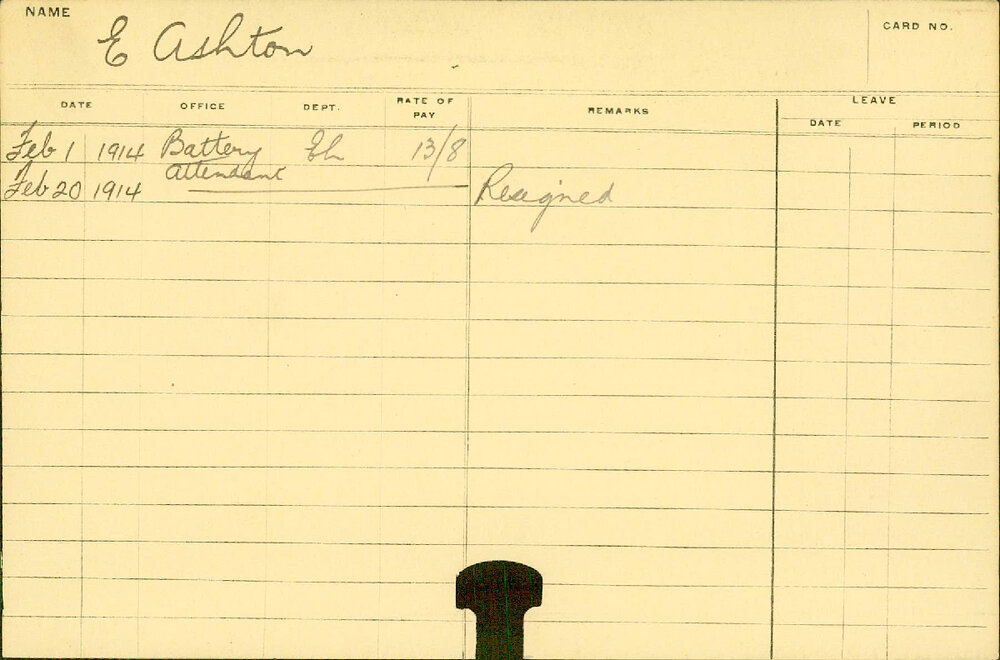 NAME
E Ashton
CARD NO.
DATE OFFICE DEPT. RATE OF PAY REMARKS LEAVE
DATE PERIOD
Feb 1 1914 Battery Attendant Eh 13/8
Feb 20 1914 Resigned